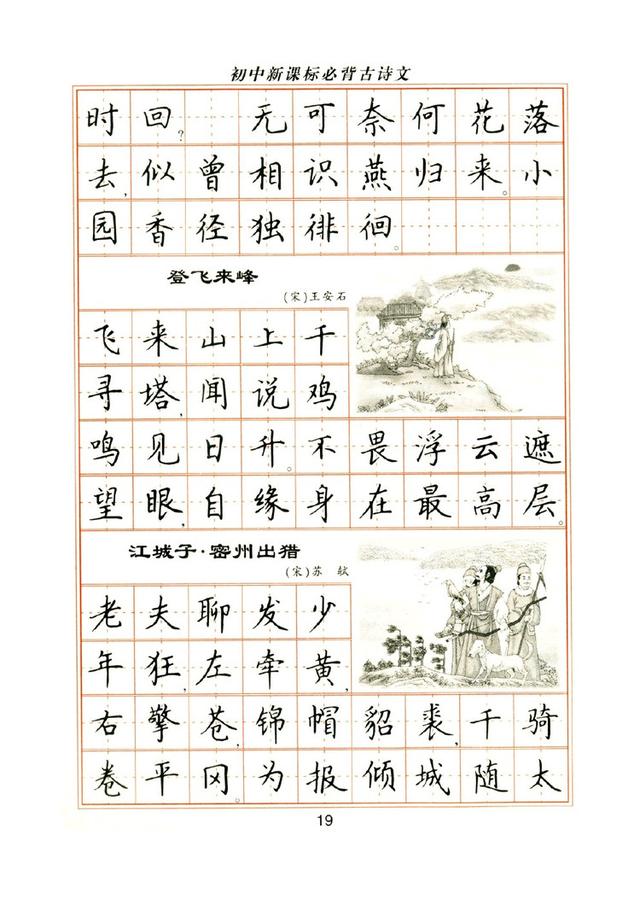 初中新课标必背古诗文
时回?　无可奈何花落
去,似曾相识燕归来。小
园香径独徘徊。
登飞来峰
(宋)王安石
飞来山上千
寻塔,闻说鸡
鸣见日升。不畏浮云遮
望眼,自缘身在最高层。
江城子·密州出猎
(宋)苏　轼
老夫聊发少
年狂,左牵黄,
右擎苍,锦帽貂裘,千骑
卷平冈。为报倾城随太
19